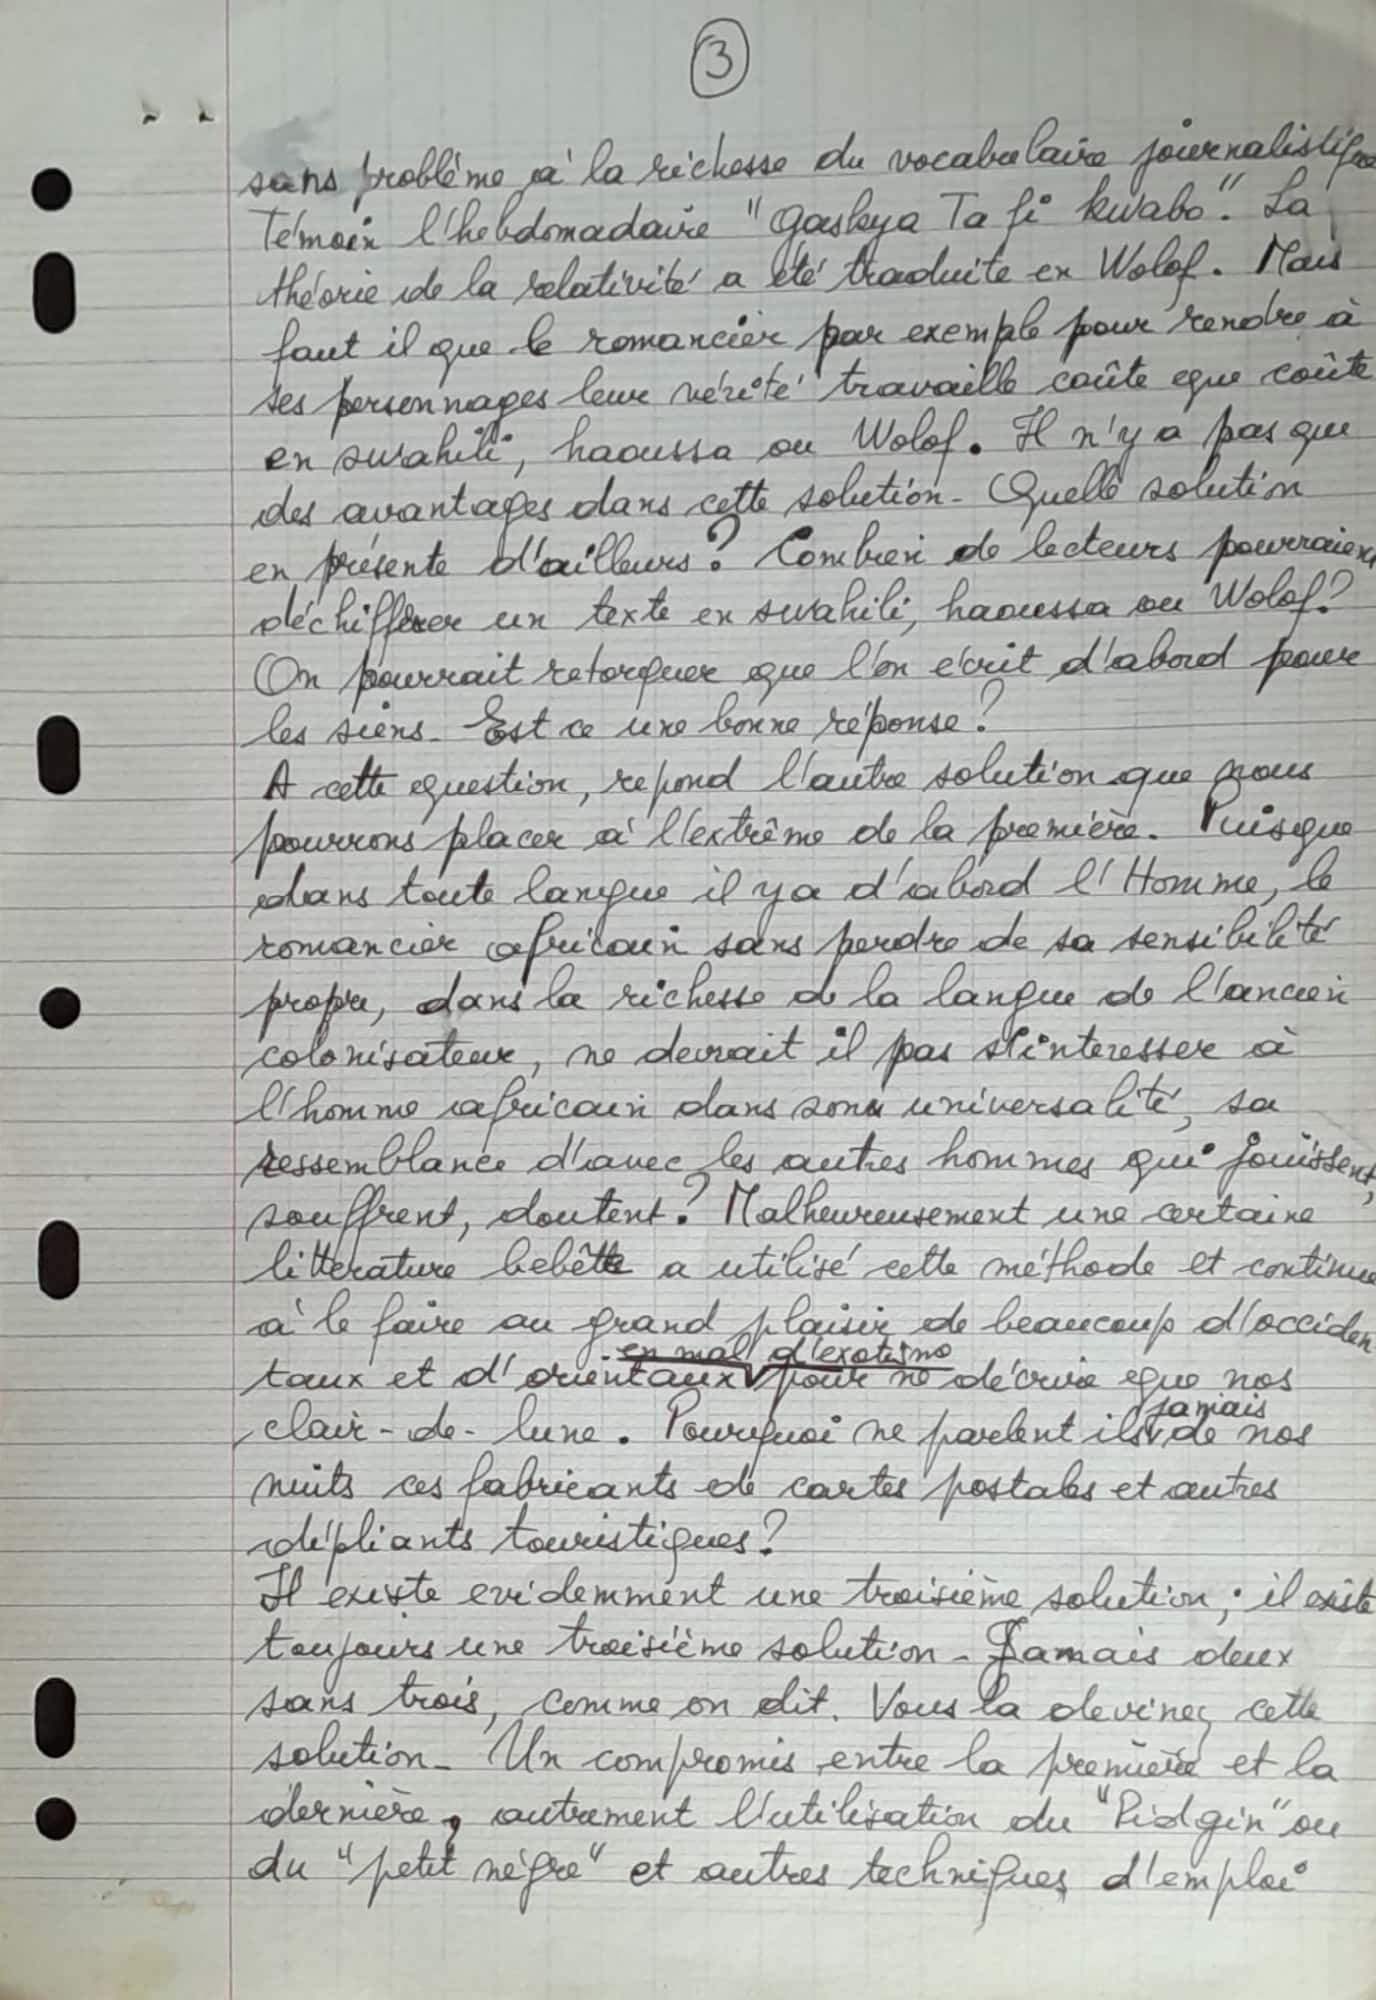 3
sans problème à la richesse du vocabulaire journalistique
Témoin l'hebdomadaire "Gaskya Ta fi kwabo". La
théorie de la relativité a été traduite en Wolof. Mais
faut il que le romancier par exemple pour rendre à
ses personnages leur vérité travaille coûte que coûte
en swahili, haoussa ou Wolof. Il n'y a pas que
des avantages dans cette solution - Quelle solution
en présente d'ailleurs? Combien de lecteurs pourraient
déchiffrer un texte en swahili, haoussa ou Wolof?
On pourrait retorquer que l'on écrit d'abord pour
les siens - Est ce une bonne réponse?
A cette question, repond l'autre solution que nous
pourrons placer à l'extrême de la première. Puisque
dans toute langue il ya d'abord l'Homme, le
romancier africain sans perdre de sa sensibilité
propre, dans la richesse de la langue de l'ancien
colonisateur, ne devrait il pas s'interesser à
l'homme africain dans son universalité, sa
ressemblance d'avec les autres hommes qui jouissent,
souffrent, doutent? Malheureusement une certaine
litterature bebête a utilisé cette méthode et continue
à le faire au grand plaisir de beaucoup d'occiden
en mal d'exotisme
taux et d'orientaux pour ne décrire que nos
jamais
clair-de-lune. Pourquoi ne parlent ils de nos
nuits ces fabricants de cartes postales et autres
dépliants touristiques?
Il existe evidemment une troisième solution; il existe
toujours une troisième solution - Jamais deux
sans trois, comme on dit. Vous la devinez cette
solution - Un compromis entre la première et la
dernière, autrement l'utilisation du "Pidgin" ou
du "petit nègre" et autres techniques d'emploi